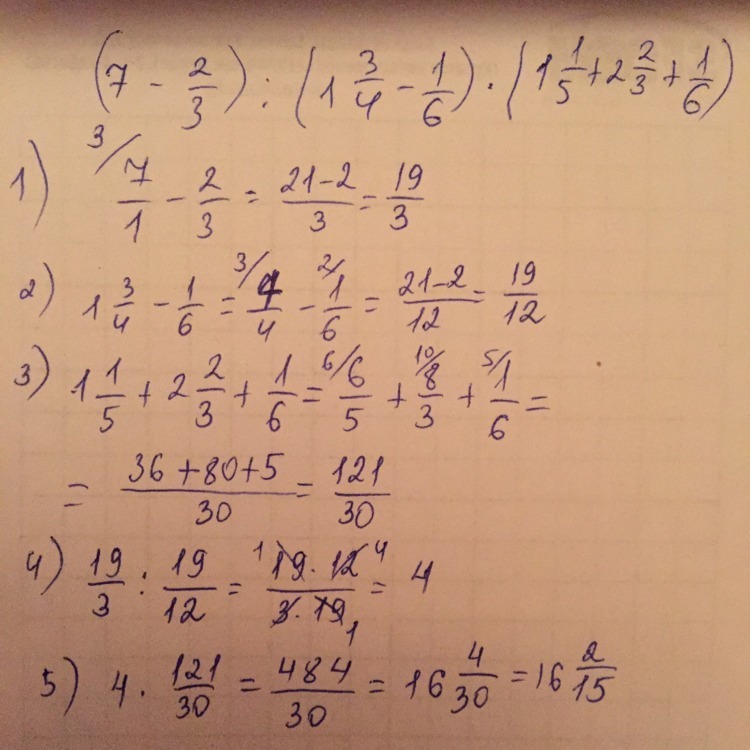 (7 - 2/3) : (1 3/4 - 1/6) · (1 1/5 + 2 2/3 + 1/6)
1) 3/ 7/1 - 2/3 = 21-2/3 = 19/3
2) 1 3/4 - 1/6 = 3/ 7/4 - 2/ 1/6 = 21-2/12 = 19/12
3) 1 1/5 + 2 2/3 + 1/6 = 6/ 6/5 + 10/ 8/3 + 5/ 1/6 =
= 36+80+5/30 = 121/30
4) 19/3 : 19/12 = 1 19 · 12 4/3 · 19 1 = 4
5) 4 · 121/30 = 484/30 = 16 4/30 = 16 2/15